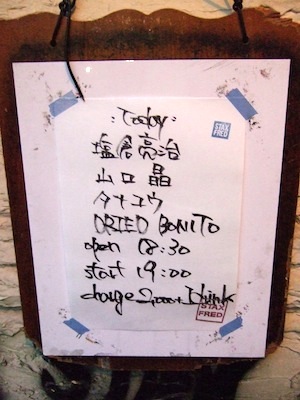 : Today :
STAX
FRED
塩倉亮治
山口 晶
タナユウ
DRIED BONITO
open 18:30
start 19:00
charge + Drink
STAX
FRED